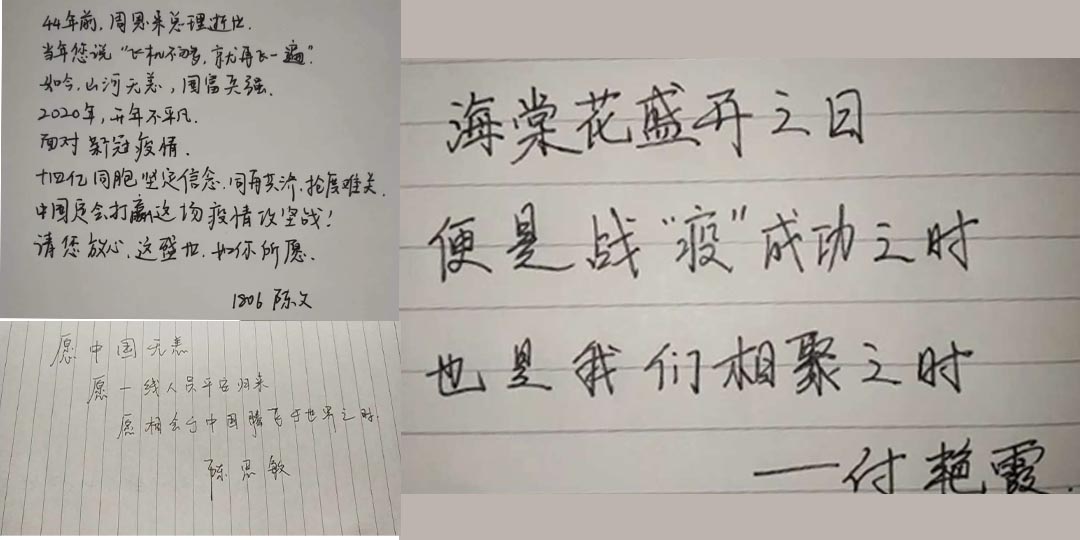 44年前,周恩来总理逝世.
当年您说“飞机不够,就再飞一遍”.
如今,山河无恙,国富兵强.
2020年,开年不平凡.
面对新冠疫情.
十四亿同胞坚定信念.同舟共济.抢度难关.
中国定会打赢这场疫情攻坚战!
请您放心,这盛世.如你所愿.
1806 陈文
愿中国无恙
愿一线人员平安归来
愿相会于中国腾飞于世界之时.
陈思敏
海棠花盛开之日
便是战“疫”成功之时
也是我们相聚之时
——付艳霞.